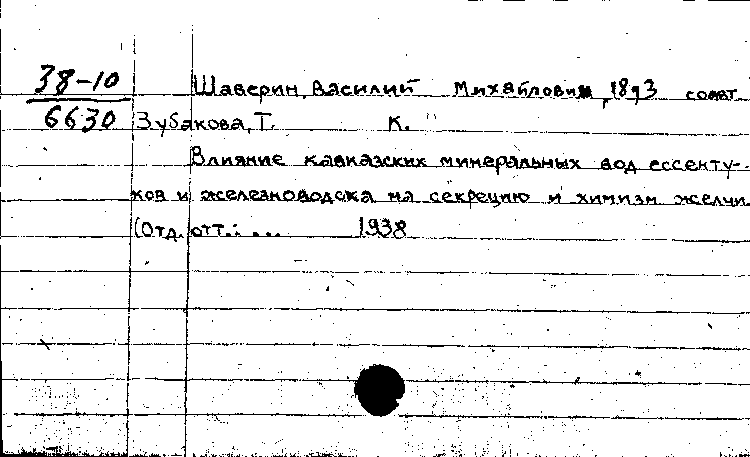 38-10 Шаверин, Василий Михайлович, 1893 соавт.
6630 Зубакова, Т. К.
Влияние кавказских минеральных вод ессенту-
ков и железноводска на секрецию и химизм желчи
(Отд. отт.: ... 1938